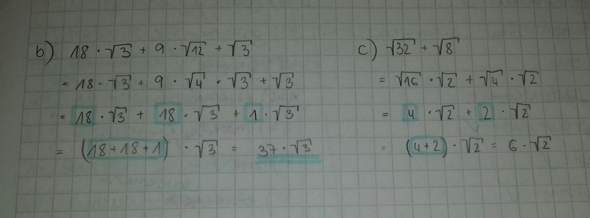 b) 18 · √3 + 9 · √12 + √3
= 18 · √3 + 9 · √4 · √3 + √3
= 18 · √3 + 18 · √3 + 1 · √3
= (18+18+1) · √3 = 37 · √3
c) √32 + √8
= √16 · √2 + √4 · √2
= 4 · √2 + 2 · √2
= (4+2) · √2 = 6 · √2